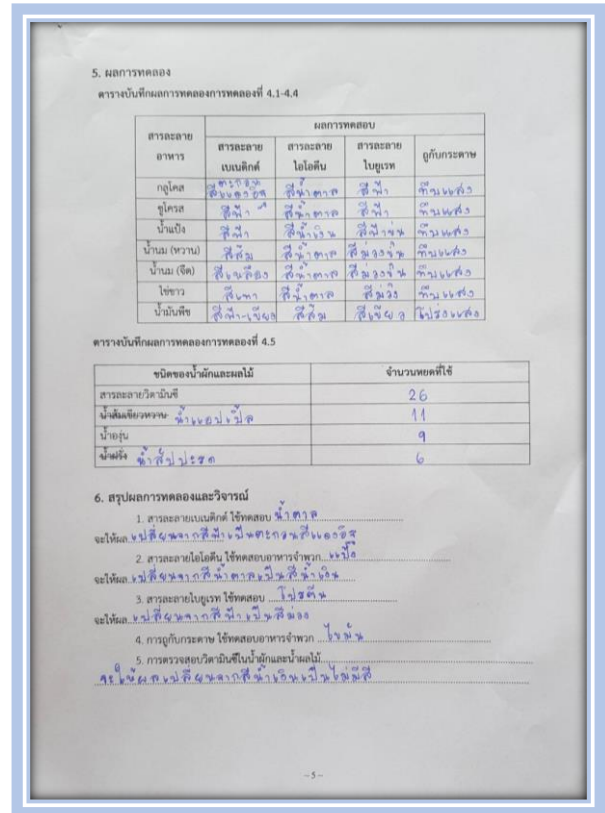 5. ผลการทดลอง
ตารางบันทึกผลการทดลองการทดลองที่ 4.1-4.4
สารละลายอาหาร ผลการทดสอบ
สารละลายเบเนดิกต์ สารละลายไอโอดีน สารละลายไบยูเรท ถูกับกระดาษ
กลูโคส ตะกอนสีแดงอิฐ สีน้ำตาล สีฟ้า ทึบแสง
ซูโครส สีฟ้า สีน้ำตาล สีฟ้า ทึบแสง
น้ำแป้ง สีฟ้า สีน้ำเงิน สีฟ้าขุ่น ทึบแสง
น้ำนม (หวาน) สีส้ม สีน้ำตาล สีม่วงขุ่น ทึบแสง
น้ำนม (จืด) สีเหลือง สีน้ำตาล สีม่วงขุ่น ทึบแสง
ไข่ขาว สีเทา สีน้ำตาล สีม่วง ทึบแสง
น้ำมันพืช สีฟ้า-เขียว สีส้ม สีเขียว โปร่งแสง
ตารางบันทึกผลการทดลองการทดลองที่ 4.5
ชนิดของน้ำผักและผลไม้ จำนวนหยดที่ใช้
สารละลายวิตามินซี 26
น้ำส้มเขียวหวาน น้ำแอปเปิ้ล 11
น้ำองุ่น 9
น้ำฝรั่ง น้ำสับปะรด 6
6. สรุปผลการทดลองและวิจารณ์
1. สารละลายเบเนดิกต์ ใช้ทดสอบ น้ำตาล
จะให้ผล เปลี่ยนจากสีฟ้าเป็นตะกอนสีแดงอิฐ
2. สารละลายไอโอดีน ใช้ทดสอบอาหารจำพวก แป้ง
จะให้ผล เปลี่ยนจากสีน้ำตาลเป็นสีน้ำเงิน
3. สารละลายไบยูเรท ใช้ทดสอบ โปรตีน
จะให้ผล เปลี่ยนจากสีฟ้าเป็นสีม่วง
4. การถูกับกระดาษ ใช้ทดสอบอาหารจำพวก ไขมัน
5. การตรวจสอบวิตามินซีในน้ำผักและน้ำผลไม้
จะให้ผลเปลี่ยนจากสีน้ำเงินเป็นไม่มีสี
-5-